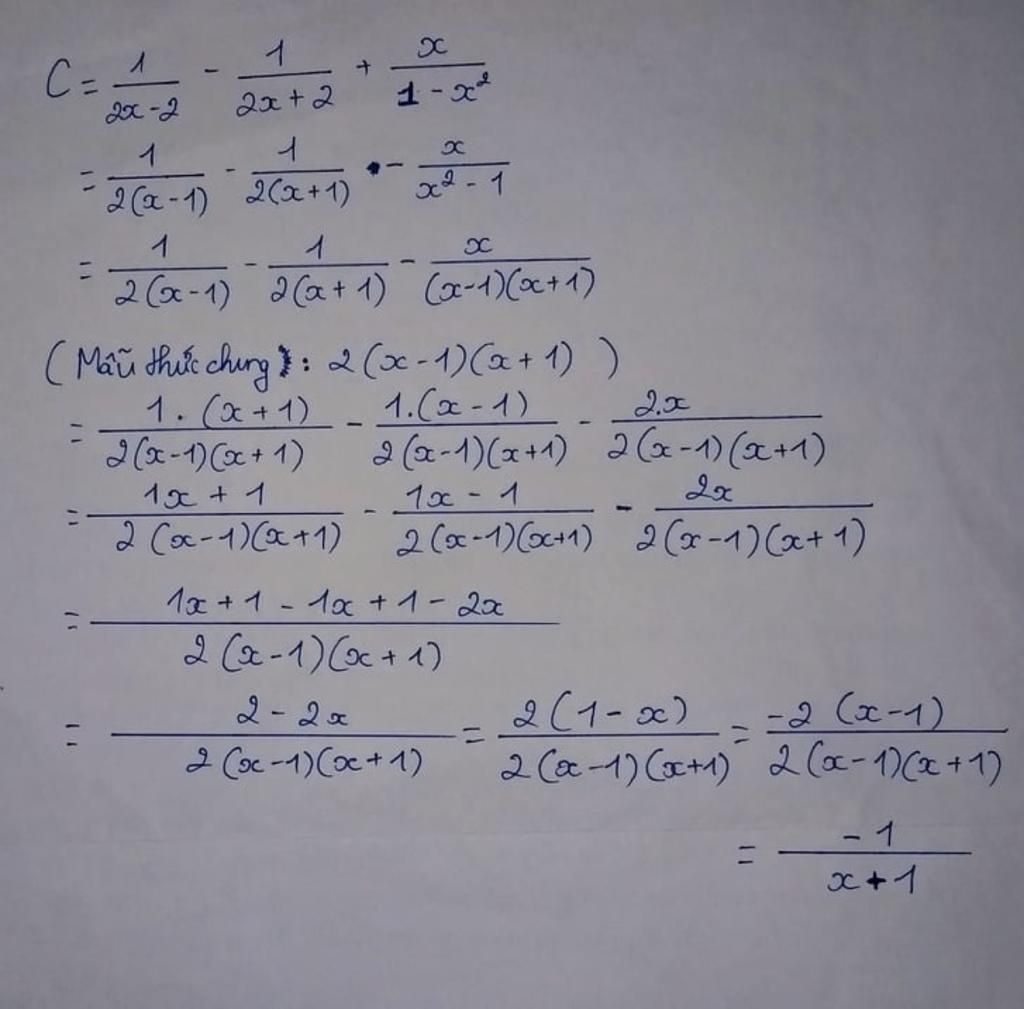 C = 1/(2x-2) - 1/(2x+2) + x/(1-x²)
= 1/(2(x-1)) - 1/(2(x+1)) - x/(x²-1)
= 1/(2(x-1)) - 1/(2(x+1)) - x/((x-1)(x+1))
(Mẫu thức chung): 2(x-1)(x+1) )
= 1.(x+1)/(2(x-1)(x+1)) - 1.(x-1)/(2(x-1)(x+1)) - 2.x/(2(x-1)(x+1))
= (1x+1)/(2(x-1)(x+1)) - (1x-1)/(2(x-1)(x+1)) - 2x/(2(x-1)(x+1))
= (1x+1-1x+1-2x)/(2(x-1)(x+1))
= (2-2x)/(2(x-1)(x+1)) = 2(1-x)/(2(x-1)(x+1)) = -2(x-1)/(2(x-1)(x+1))
= -1/(x+1)